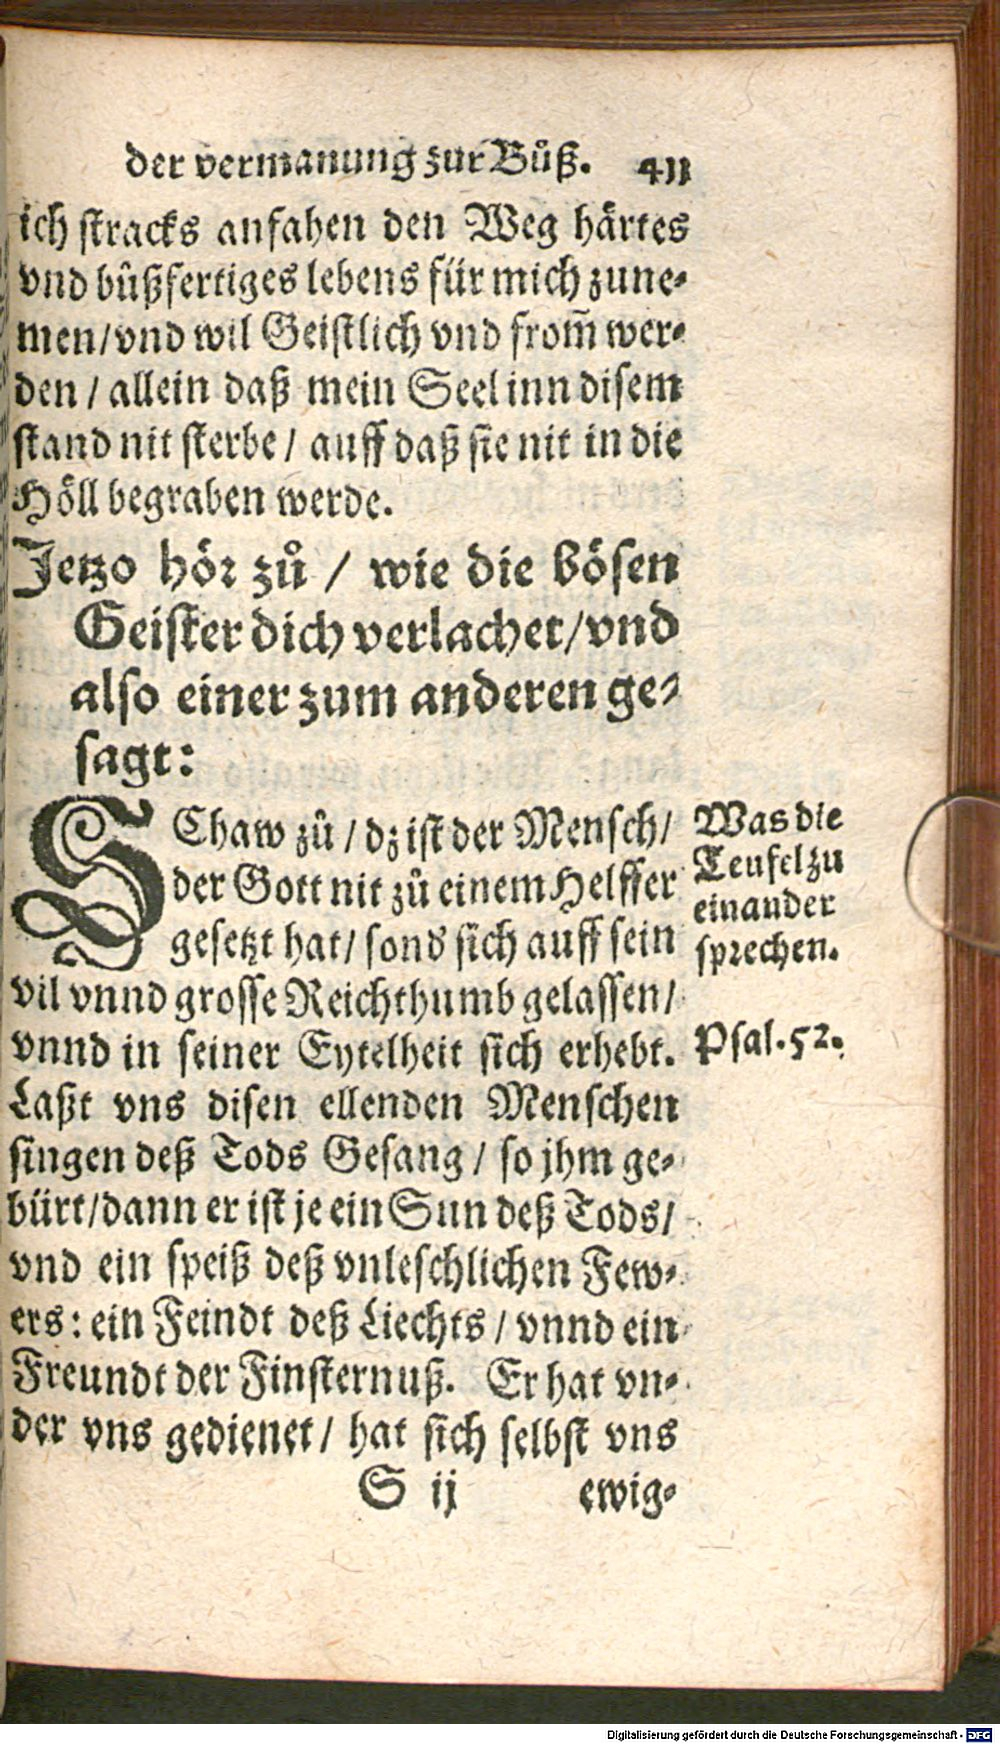 der vermanung zur Bůß. 411
ich stracks anfahen den Weg härtes
vnd bůßfertiges lebens für mich zune-
men/vnd wil Geistlich vnd from̃ wer-
den / allein daß mein Seel inn disem
stand nit sterbe / auff daß sie nit in die
Höll begraben werde.
Jetzo hör zů / wie die bösen
Geister dich verlachet/vnd
also einer zum anderen ge-
sagt:
SChaw zů / dz ist der Mensch/
der Gott nit zů einem Helffer
gesetzt hat/ sond sich auff sein
vil vnnd grosse Reichthumb gelassen/
vnnd in seiner Eytelheit sich erhebt.
Laßt vns disen ellenden Menschen
singen deß Tods Gesang / so jhm ge-
bürt/dann er ist je ein Sun deß Tods/
vnd ein speiß deß vnleschlichen Few-
ers: ein Feindt deß Liechts / vnnd ein
Freundt der Finsternuß. Er hat vn-
der vns gedienet/ hat sich selbst vns
S ij ewig-
Was die
Teufel zu
einander
sprechen.
Psal. 52.
Digitalisierung gefördert durch die Deutsche Forschungsgemeinschaft - DFG